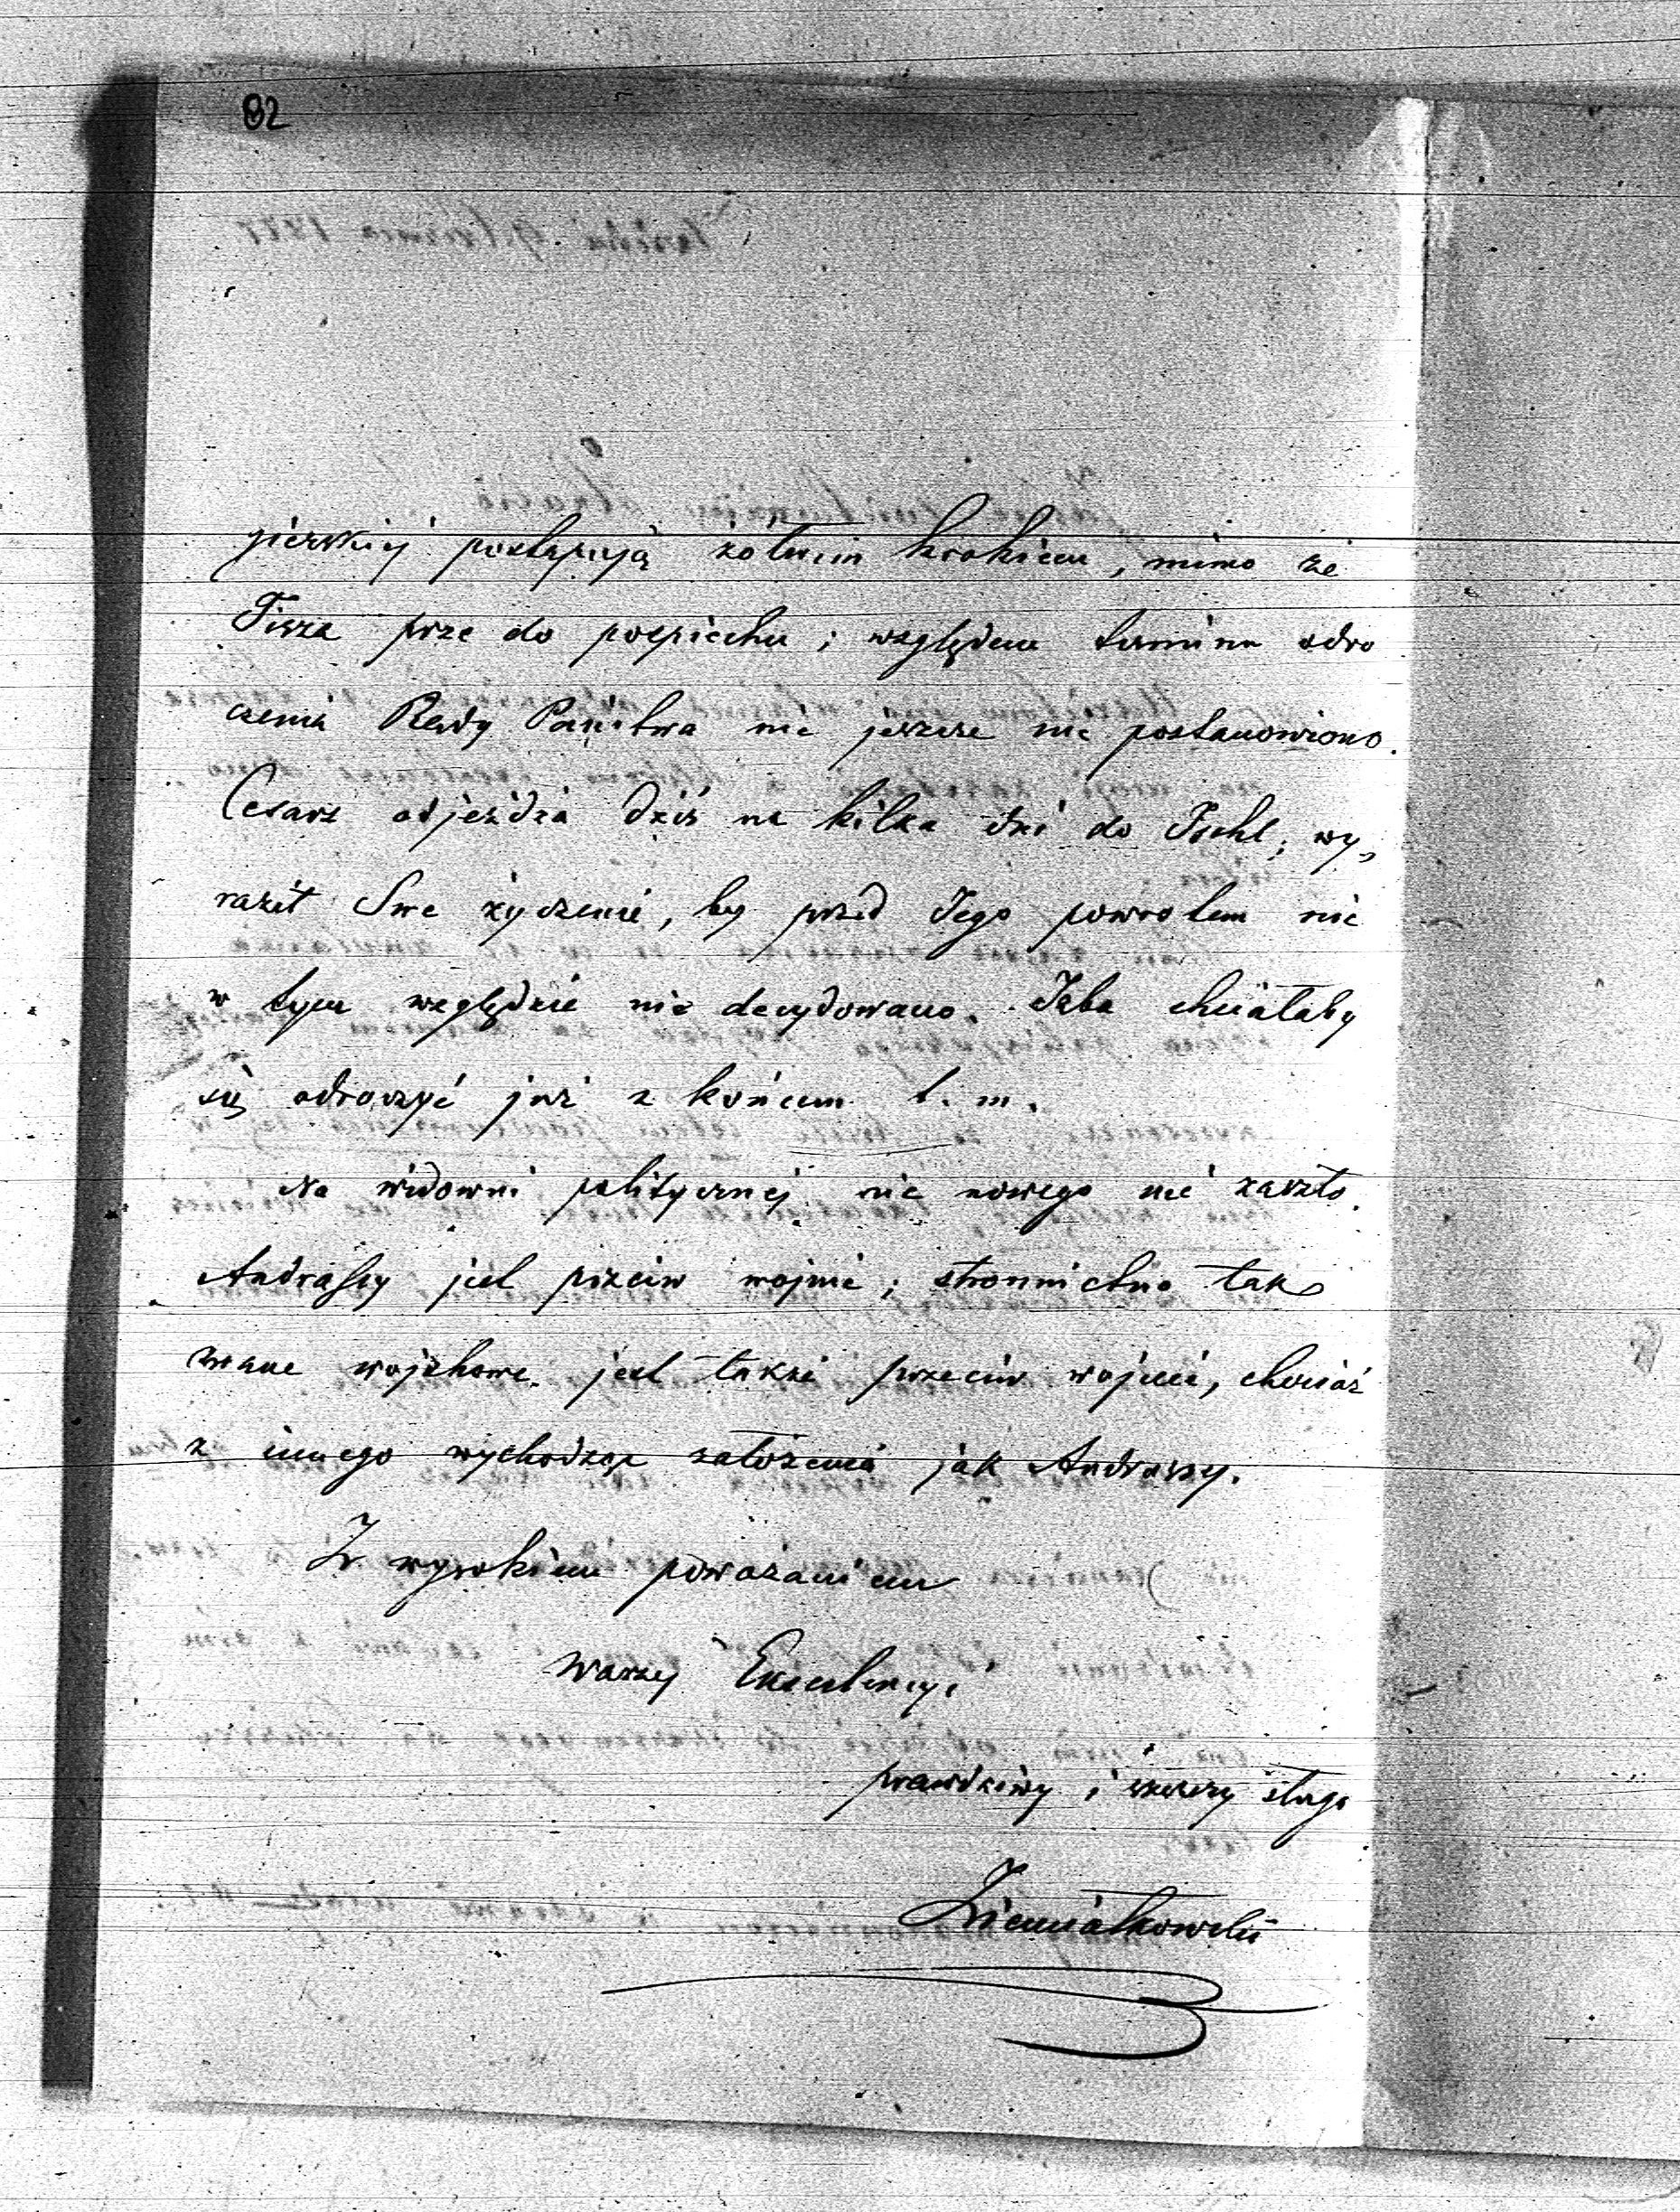 82
gierskiej postępują żółwim krokiem, mimo że
Tisza prze do pospiechu; względem terminu odro
czenia Rady Państwa nie jeszcze nie postanowiono.
Cesarz odjeżdża dziś na kilka dni do Ischl; wy„
raził Swe życzenie, by przed Jego powrotem nic
w tym względzie nie decydowano. Izba chciałaby
się odroczyć już z końcem b. m.
Na widowni politycznej nic nowego nie zaszło.
Andrássy jest przeciw wojnie; stronnictwo tak
zwane wojskowe jest także przeciw wojnie, chociaż
z innego wychodząc założenia jak Andrassy.
Z wysokiem poważaniem
Waszej Excelencyi
prawdziwy i szczery sługa
Ziemiałkowski